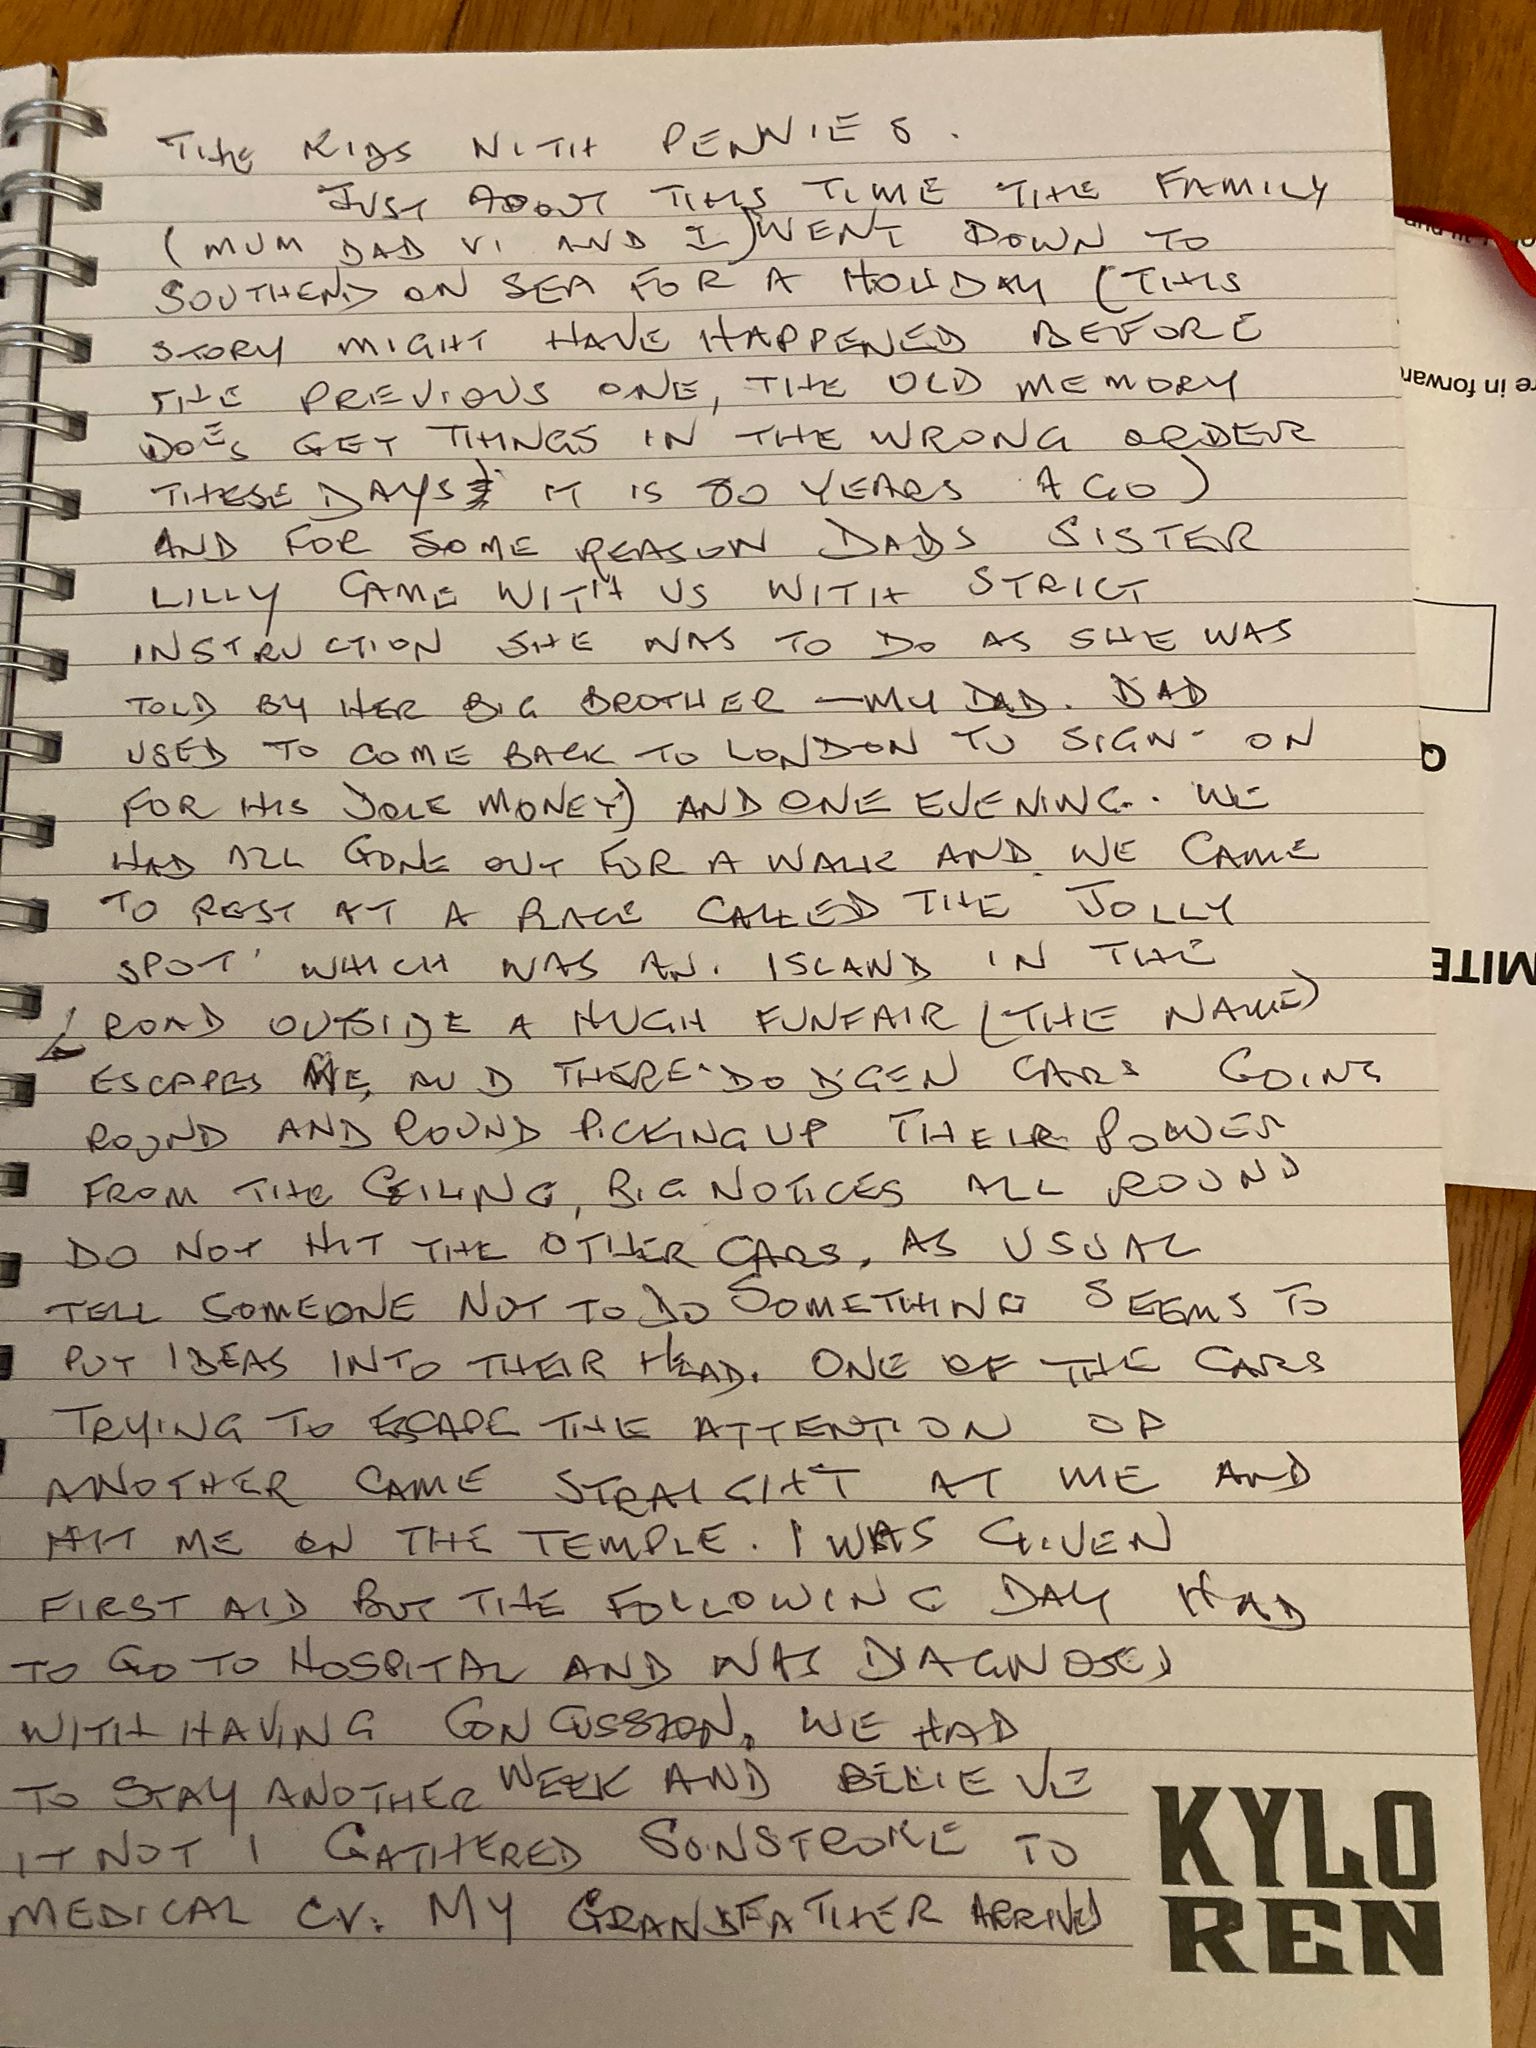 THE KIDS WITH PENNIES.
JUST ABOUT THIS TIME THE FAMILY
(MUM DAD VI AND I) WENT DOWN TO
SOUTHEND ON SEA FOR A HOLIDAY (THIS
STORY MIGHT HAVE HAPPENED BEFORE
THE PREVIOUS ONE, THE OLD MEMORY
DOES GET THINGS IN THE WRONG ORDER
THESE DAYS IT IS 80 YEARS AGO)
AND FOR SOME REASON DADS SISTER
LILLY CAME WITH US WITH STRICT
INSTRUCTION SHE WAS TO DO AS SHE WAS
TOLD BY HER BIG BROTHER – MY DAD. DAD
USED TO COME BACK TO LONDON TO SIGN - ON
FOR HIS DOLE MONEY) AND ONE EVENING. WE
HAD ALL GONE OUT FOR A WALK AND WE CAME
TO REST AT A PLACE CALLED THE JOLLY
SPOT' WHICH WAS AN. ISLAND IN THE
ROAD OUTSIDE A HUGH FUNFAIR (THE NAME)
ESCAPES ME, AND THERE DODGEN CARS GOING
ROUND AND ROUND PICKING UP THEIR POWER
FROM THE CEILING, BIG NOTICES ALL ROUND
DO NOT HIT THE OTHER CARS, AS USUAL
TELL SOMEONE NOT TO DO SOMETHING SEEMS TO
PUT IDEAS INTO THEIR HEAD. ONE OF THE CARS
TRYING TO ESCAPE THE ATTENTION OF
ANOTHER CAME STRAIGHT AT ME AND
HIT ME ON THE TEMPLE. I WAS GIVEN
FIRST AID BUT THE FOLLOWING DAY HAD
TO GO TO HOSPITAL AND WAS DIAGNOSED
WITH HAVING CONCUSSION. WE HAD
TO STAY ANOTHER WEEK AND BELIEVE
IT NOT I GATHERED SONSTROKE TO
MEDICAL CV. MY GRANDFATHER ARRIVED
KYLO
REN
re in forwar
MITE